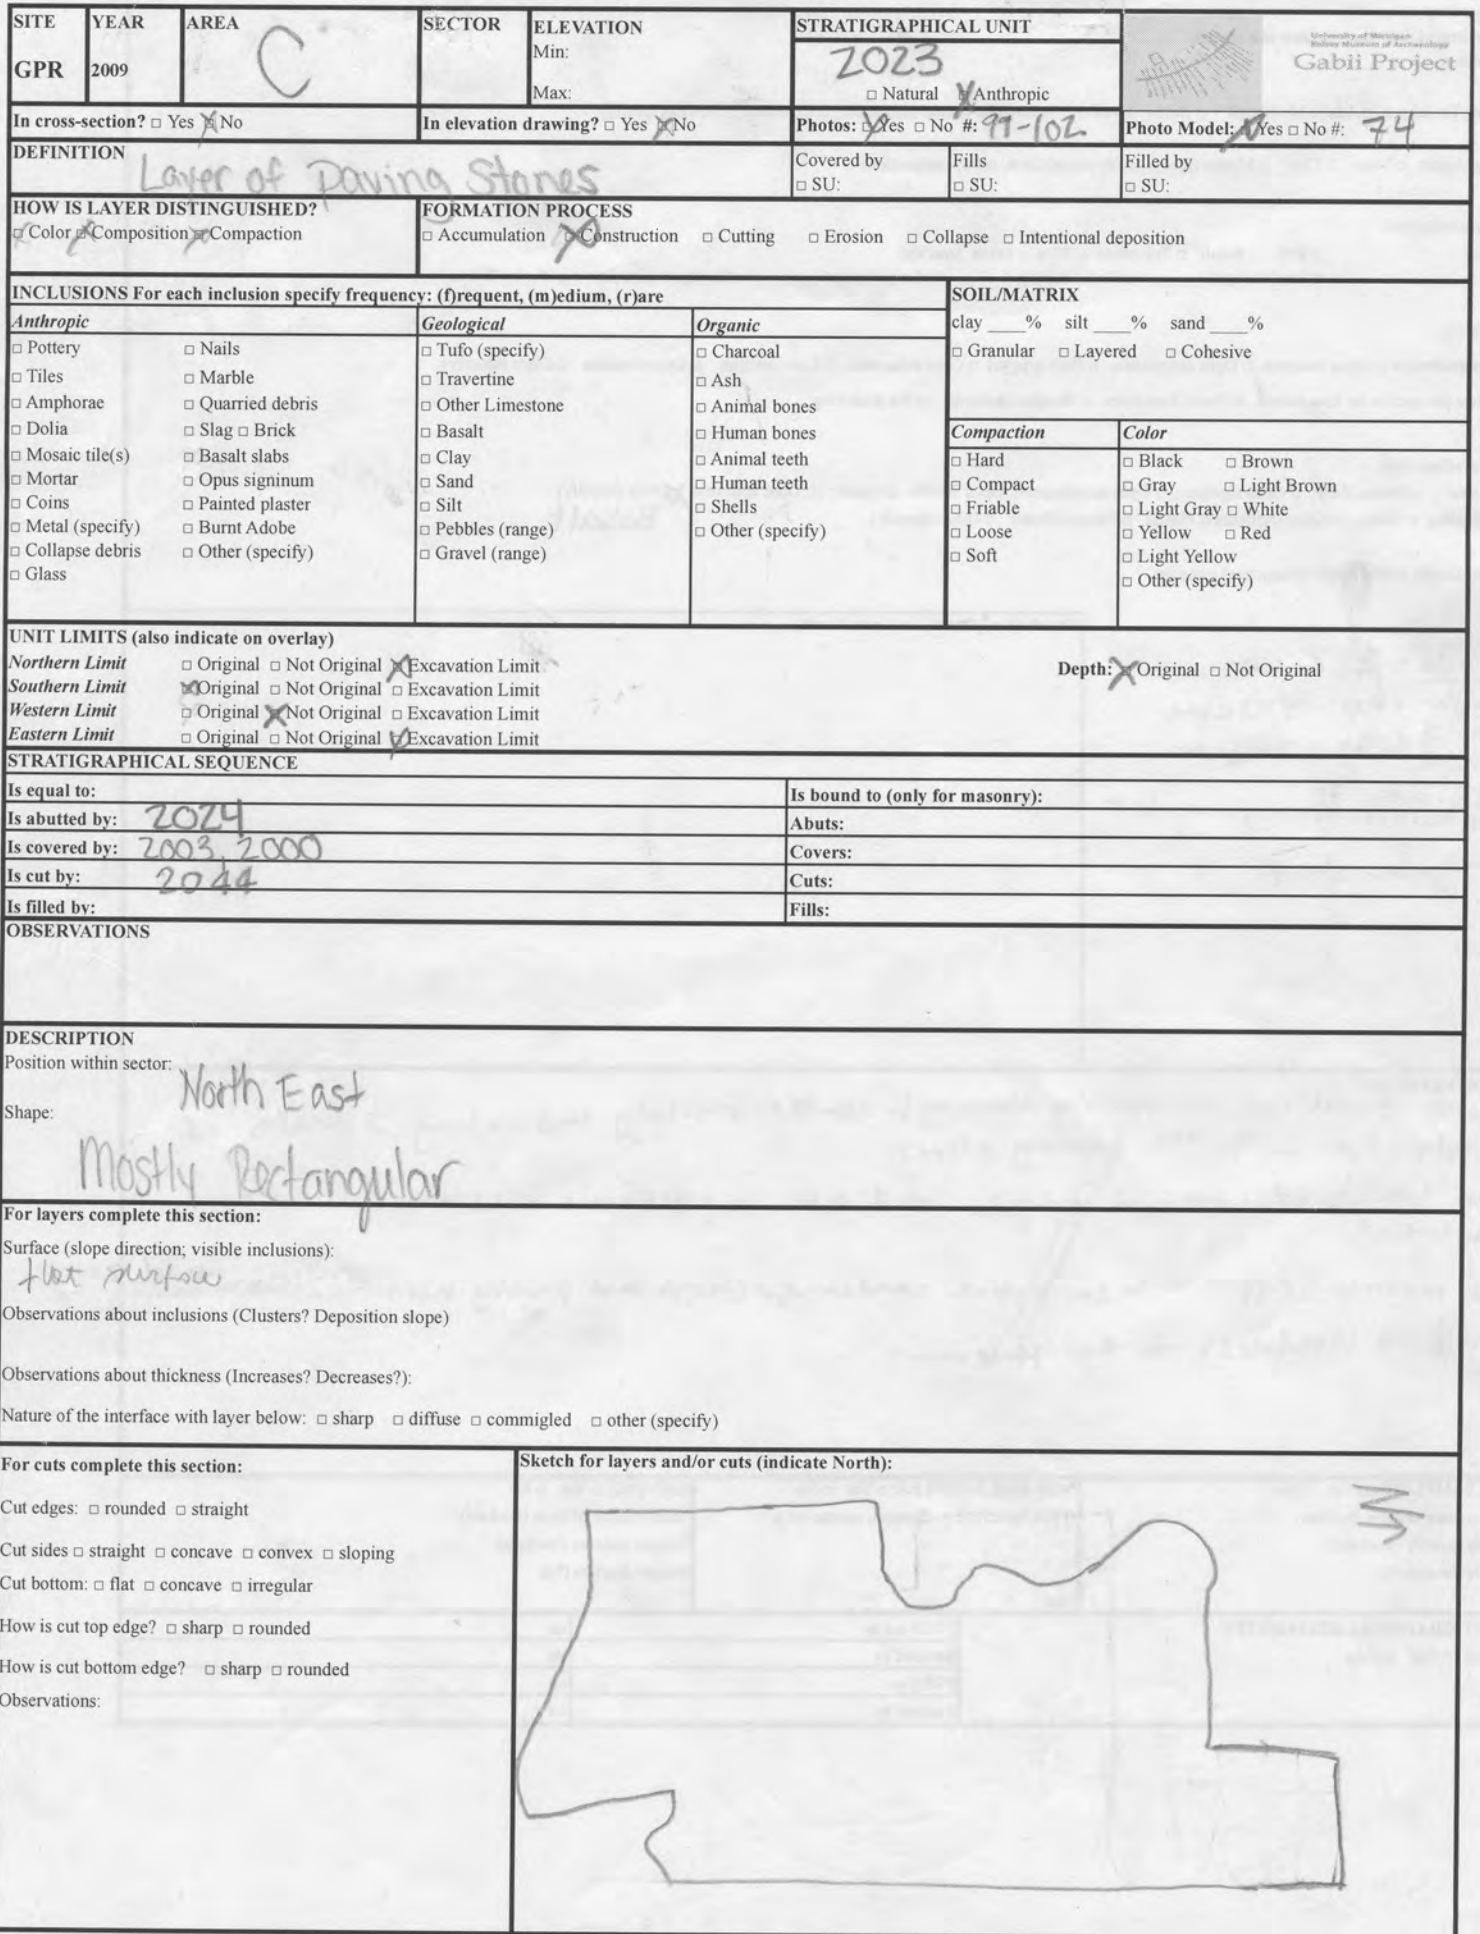 SITE YEAR AREA SECTOR ELEVATION STRATIGRAPHICAL UNIT
GPR 2009 C Min: 2023
Max: □ Natural ☒ Anthropic
University of Michigan
Kelsey Museum of Archaeology
Gabii Project
In cross-section? □ Yes ☒ No In elevation drawing? □ Yes ☒ No Photos: ☒ Yes □ No #: 99-102 Photo Model: ☒ Yes □ No #: 74
DEFINITION Layer of Paving Stones Covered by □ SU: Fills □ SU: Filled by □ SU:
HOW IS LAYER DISTINGUISHED? FORMATION PROCESS
☒ Color ☒ Composition ☒ Compaction □ Accumulation ☒ Construction □ Cutting □ Erosion □ Collapse □ Intentional deposition
INCLUSIONS For each inclusion specify frequency: (f)requent, (m)edium, (r)are
Anthropic
□ Pottery □ Nails
□ Tiles □ Marble
□ Amphorae □ Quarried debris
□ Dolia □ Slag □ Brick
□ Mosaic tile(s) □ Basalt slabs
□ Mortar □ Opus signinum
□ Coins □ Painted plaster
□ Metal (specify) □ Burnt Adobe
□ Collapse debris □ Other (specify)
□ Glass
Geological
□ Tufo (specify)
□ Travertine
□ Other Limestone
□ Basalt
□ Clay
□ Sand
□ Silt
□ Pebbles (range)
□ Gravel (range)
Organic
□ Charcoal
□ Ash
□ Animal bones
□ Human bones
□ Animal teeth
□ Human teeth
□ Shells
□ Other (specify)
SOIL/MATRIX
clay ____% silt ____% sand ____%
□ Granular □ Layered □ Cohesive
Compaction
□ Hard
□ Compact
□ Friable
□ Loose
□ Soft
Color
□ Black □ Brown
□ Gray □ Light Brown
□ Light Gray □ White
□ Yellow □ Red
□ Light Yellow
□ Other (specify)
UNIT LIMITS (also indicate on overlay)
Northern Limit □ Original □ Not Original ☒ Excavation Limit Depth: ☒ Original □ Not Original
Southern Limit ☒ Original □ Not Original □ Excavation Limit
Western Limit □ Original ☒ Not Original □ Excavation Limit
Eastern Limit □ Original □ Not Original ☒ Excavation Limit
STRATIGRAPHICAL SEQUENCE
Is equal to: Is bound to (only for masonry):
Is abutted by: 2024 Abuts:
Is covered by: 2003, 2000 Covers:
Is cut by: 2044 Cuts:
Is filled by: Fills:
OBSERVATIONS
DESCRIPTION
Position within sector: North East
Shape:
Mostly Rectangular
For layers complete this section:
Surface (slope direction; visible inclusions):
flat surface
Observations about inclusions (Clusters? Deposition slope)
Observations about thickness (Increases? Decreases?):
Nature of the interface with layer below: □ sharp □ diffuse □ commigled □ other (specify)
For cuts complete this section:
Cut edges: □ rounded □ straight
Cut sides □ straight □ concave □ convex □ sloping
Cut bottom: □ flat □ concave □ irregular
How is cut top edge? □ sharp □ rounded
How is cut bottom edge? □ sharp □ rounded
Observations:
Sketch for layers and/or cuts (indicate North):
N